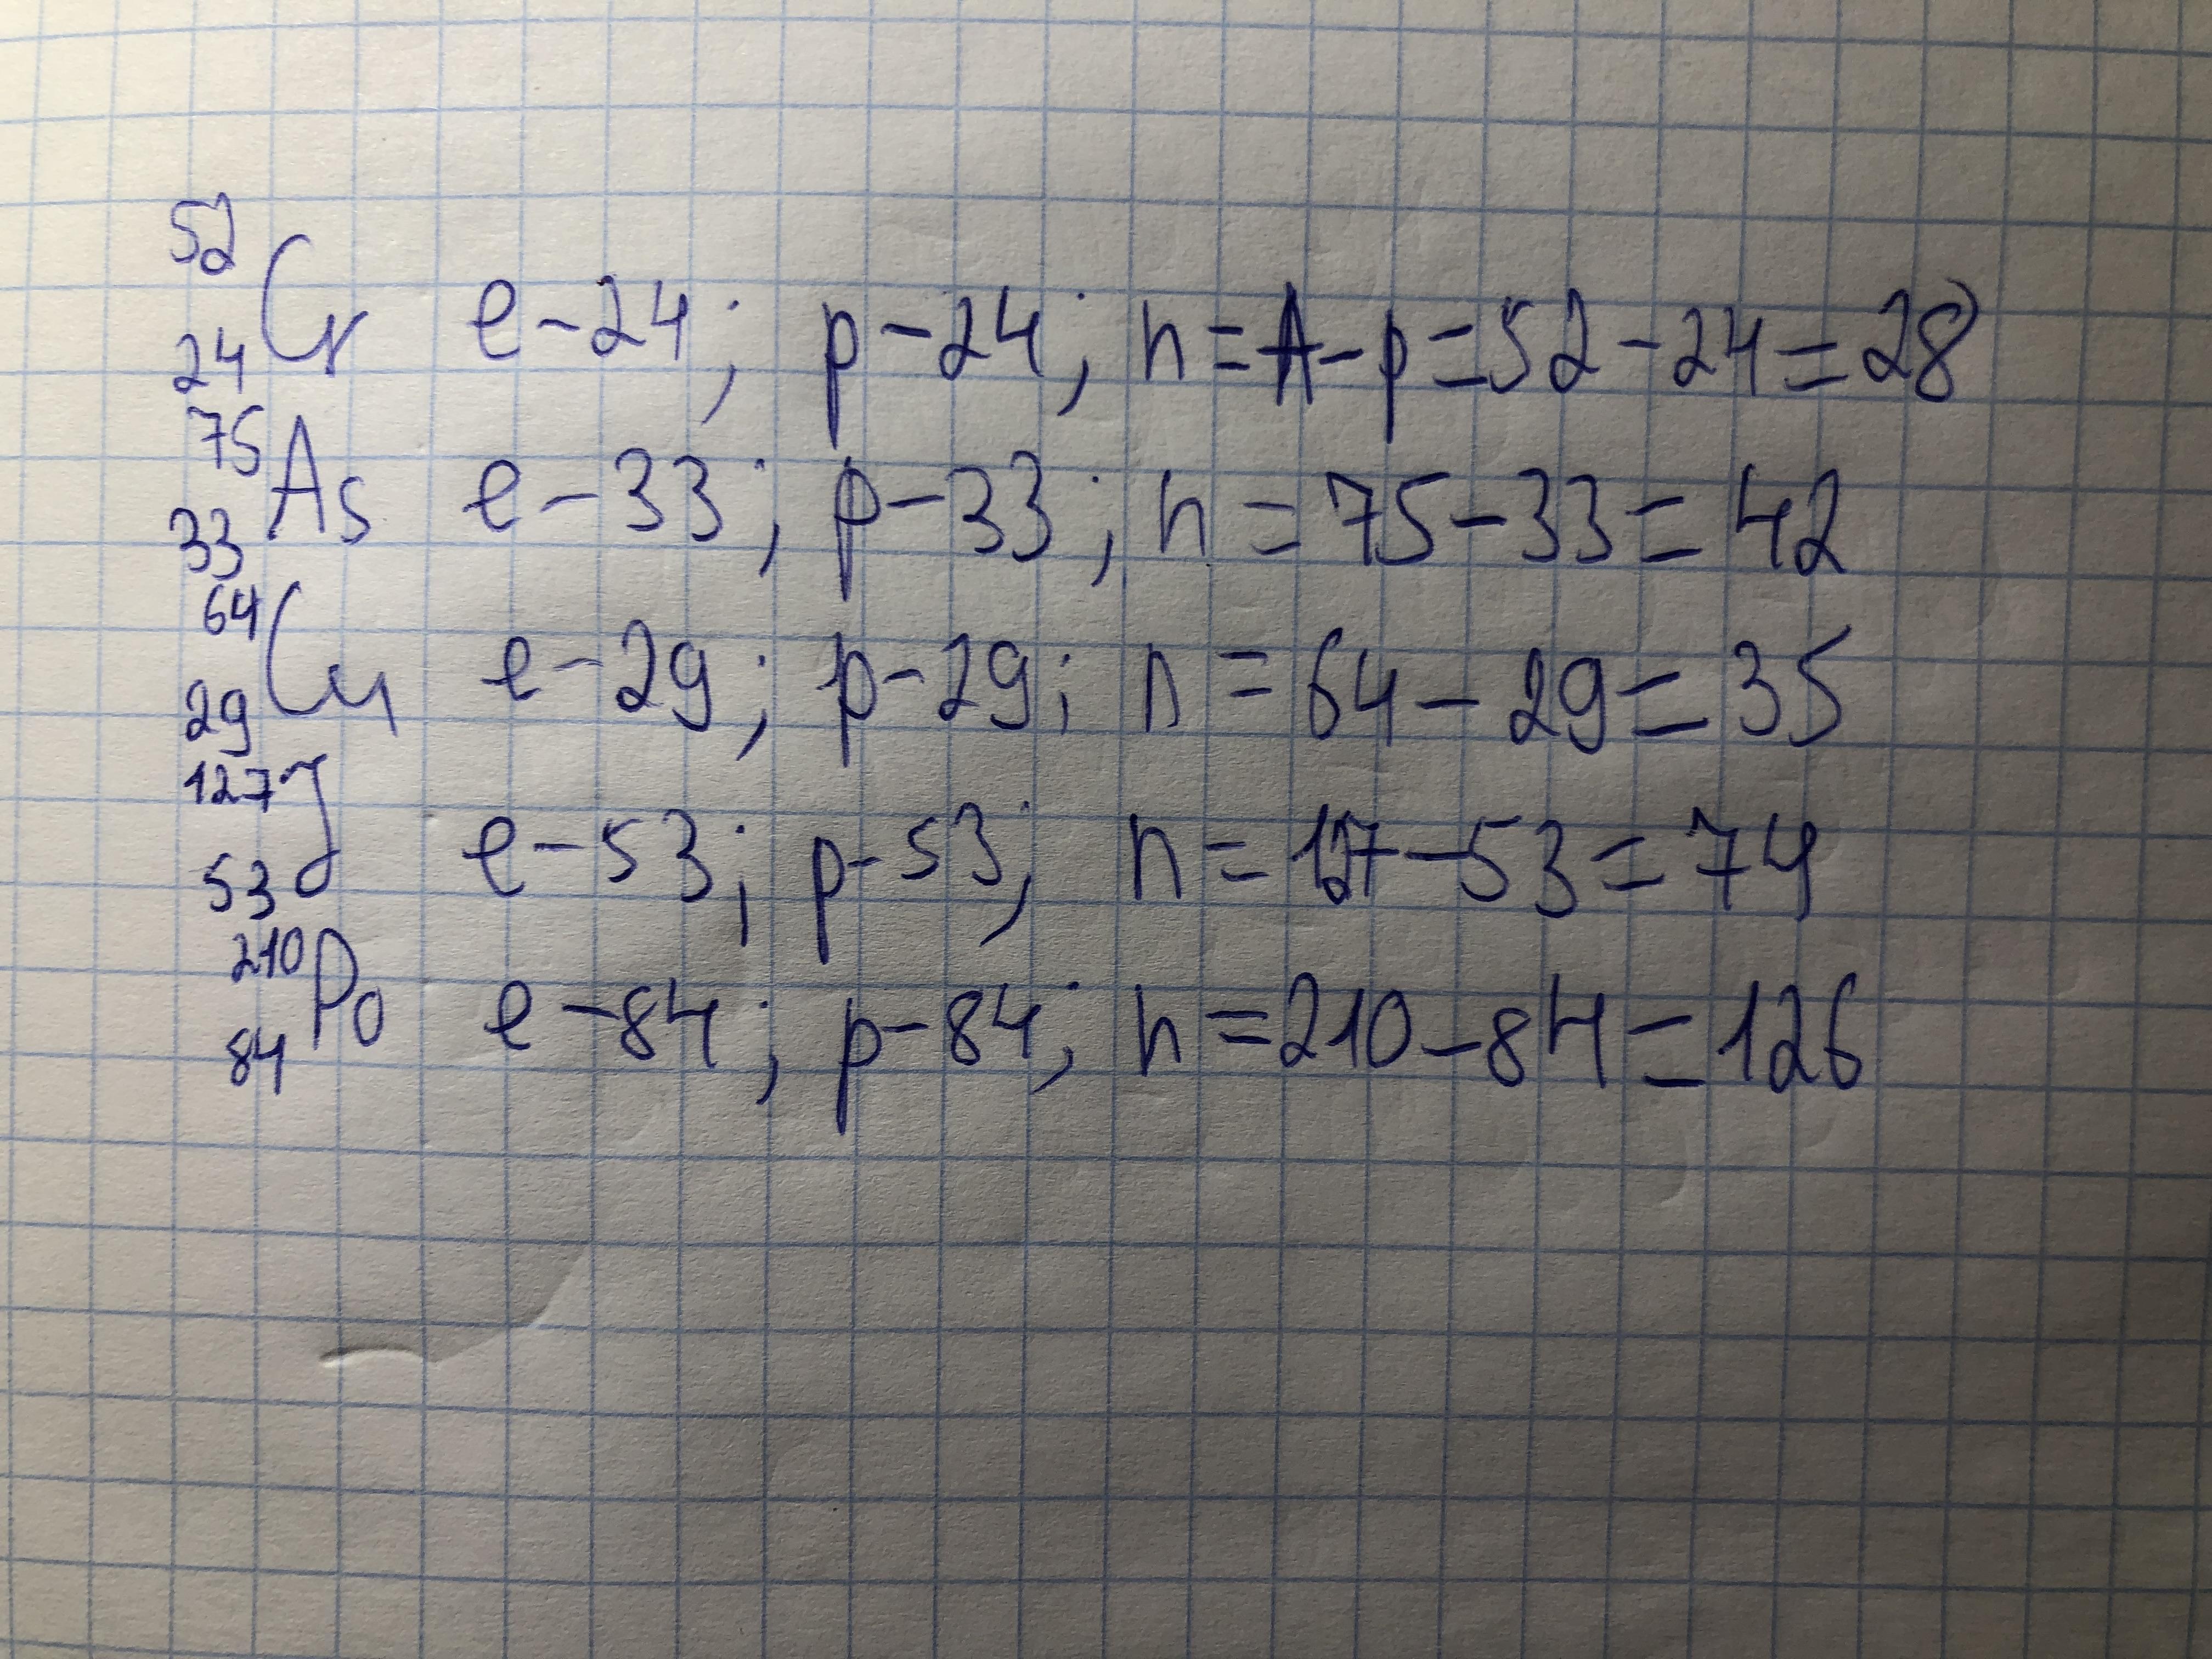 ⁵²₂₄Cr e-24; p-24; n=A-p=52-24=28
⁷⁵₃₃As e-33; p-33; n=75-33=42
⁶⁴₂₉Cu e-29; p-29; n=64-29=35
¹²⁷₅₃J e-53; p-53; n=127-53=74
²¹⁰₈₄Po e-84; p-84; n=210-84=126